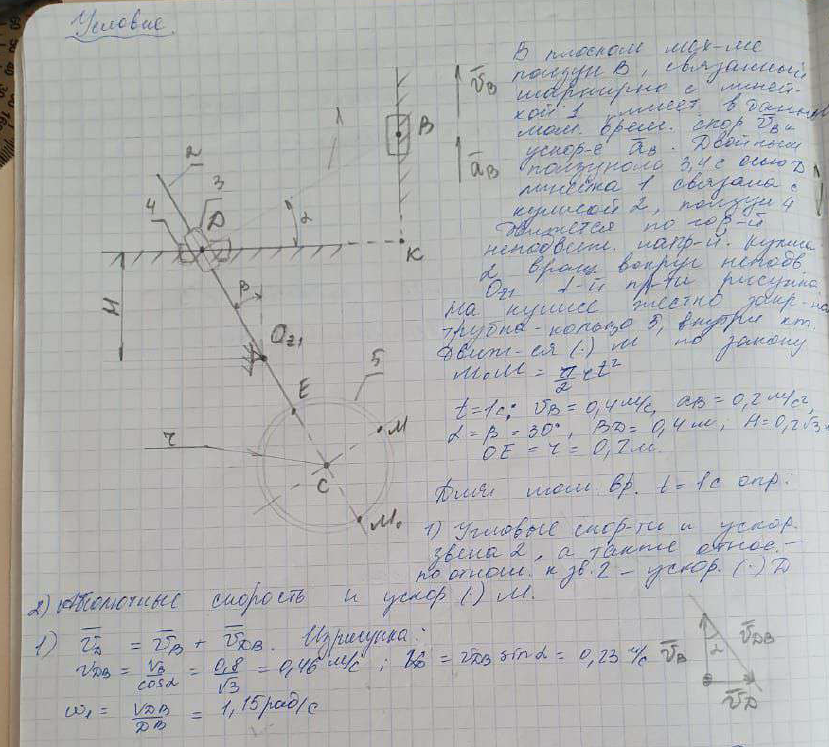 Условие.
В плоском мех-ме
ползун В, связанный
шарнирно с линей-
кой 1 имеет в данный
мом. врем. скор v̅B и
ускор-е a̅B. Двойным
ползуном 3,4 с осью D
линейка 1 связана с
кулисой 2, ползун 4
движется по гор-й
неподвижн. напр-й. Кулиса
2 вращ вокруг неподв.
O21 1-й пл-ти рисунка.
На кулисе жестко закр-на
трубка-кольцо 5, внутри кот.
движ-ся (·) M по закону
M₀M = π/2 r t²
t=1c; vB = 0,4 м/с, aB = 0,2 м/с²,
α = β = 30°, BD = 0,4 м; H = 0,2√3 м
OE = r = 0,2 м.
Для мом. вр. t = 1с опр.
1) Угловые скор-ти и ускор.
звена 2, а также относ.-
по отнош. к зв. 2 - ускор. (·) D
2) Абсолютные скорость и ускор (·) M.
1) v̅D = v̅B + v̅DB. Из рисунка:
vDB = vB/cosα = 0,8/√3 = 0,46 м/с; vD = vDB sin α = 0,23 м/с
ω₁ = vDB/DB = 1,15 рад/с
2
3
4
D
α
K
B
v̅B
a̅B
H
β
O21
E
5
M
r
C
M₀
v̅B
α
v̅DB
v̅D